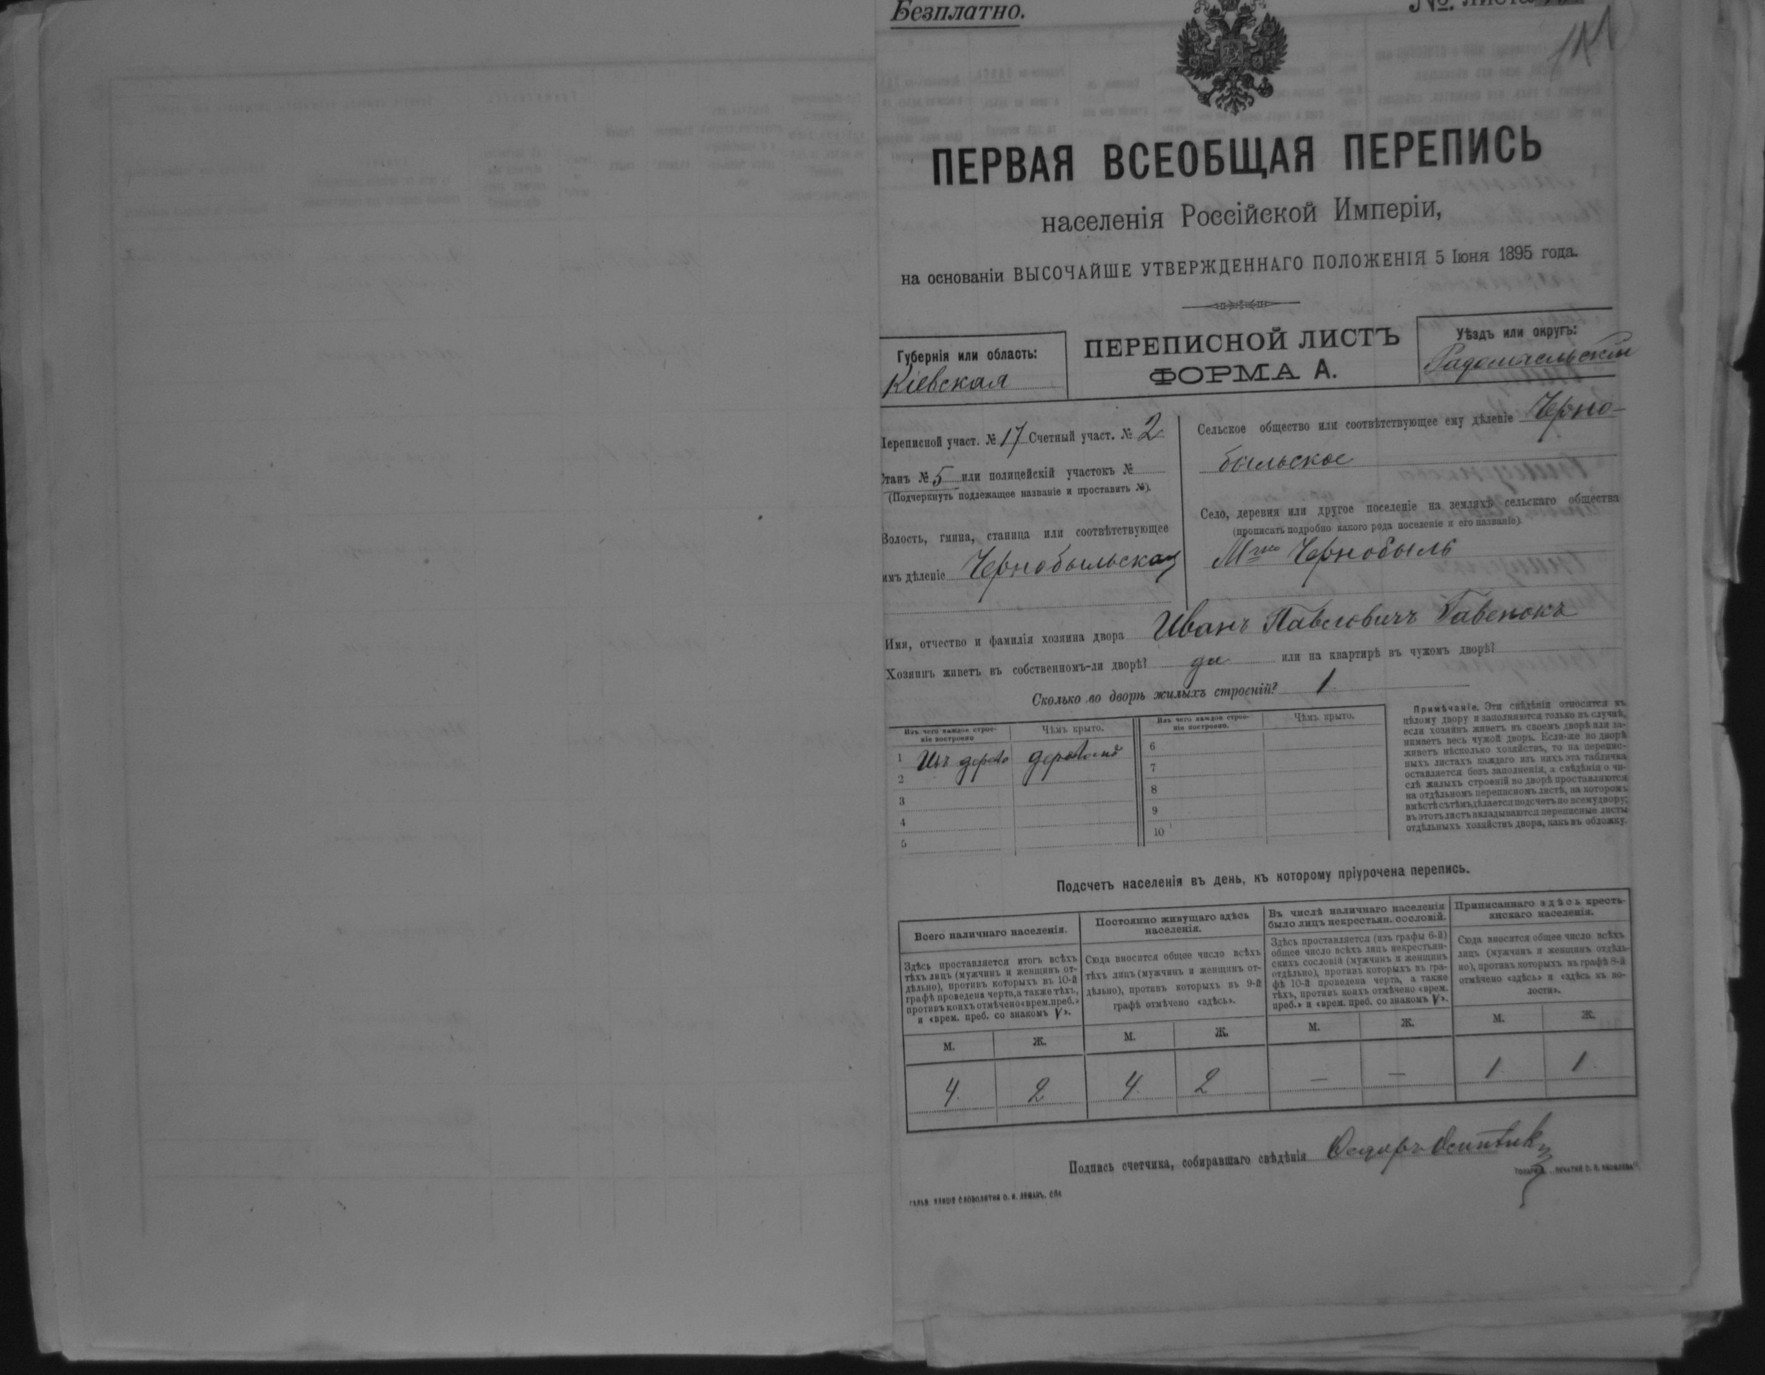 Безплатно.
№. листа
ПЕРВАЯ ВСЕОБЩАЯ ПЕРЕПИСЬ
населенія Россійской Имперіи,
на основаніи ВЫСОЧАЙШЕ УТВЕРЖДЕННАГО ПОЛОЖЕНІЯ 5 Іюня 1895 года.
Губернія или область:
Кіевская
ПЕРЕПИСНОЙ ЛИСТЪ
ФОРМА А.
Уѣздъ или округъ:
Радомысльскій
Переписной участ. № 17 Счетный участ. № 2
Станъ № 5 или полицейскій участокъ №
(Подчеркнуть подлежащее названіе и проставить №).
Волость, гмина, станица или соотвѣтствующее
имъ дѣленіе Чернобыльская
Сельское общество или соотвѣтствующее ему дѣленіе Черно-
быльское
Село, деревня или другое поселеніе на земляхъ сельскаго общества
(прописать подробно какого рода поселеніе и его названіе).
М-чко Чернобыль
Имя, отчество и фамилія хозяина двора Иванъ Павловичъ
Хозяинъ живетъ въ собственномъ-ли дворѣ? да или на квартирѣ въ чужомъ дворѣ?
Сколько во дворѣ жилыхъ строеній? 1
Изъ чего каждое строе-
ніе построено
Чѣмъ крыто.
Изъ чего каждое строе-
ніе построено.
Чѣмъ крыто.
1 Изъ дерева
2
3
4
5
6
7
8
9
10
Примѣчаніе. Эти свѣдѣнія относятся къ
цѣлому двору и заполняются только въ случаѣ,
если хозяинъ живетъ въ своемъ дворѣ или за-
нимаетъ весь чужой дворъ. Если-же во дворѣ
живетъ нѣсколько хозяйствъ, то на перепис-
ныхъ листахъ каждаго изъ нихъ эта табличка
оставляется безъ заполненія, а свѣдѣнія о чи-
слѣ жилыхъ строеній во дворѣ проставляются
на отдѣльномъ переписномъ листѣ, на которомъ
вмѣстѣ съ тѣмъ дѣлается подсчетъ по всему двору;
въ этотъ листъ вкладываются переписные листы
отдѣльныхъ хозяйствъ двора, какъ въ обложку.
Подсчетъ населенія въ день, къ которому пріурочена перепись.
Всего наличнаго населенія.
Здѣсь проставляется итогъ всѣхъ
тѣхъ лицъ (мужчинъ и женщинъ от-
дѣльно), противъ которыхъ въ 10-й
графѣ проведена черта, а также тѣхъ,
противъ коихъ отмѣчено «врем. преб.»
и «врем. преб. со знакомъ V».
Постоянно живущаго здѣсь
населенія.
Сюда вносится общее число всѣхъ
тѣхъ лицъ (мужчинъ и женщинъ от-
дѣльно), противъ которыхъ въ 9-й
графѣ отмѣчено «здѣсь».
Въ числѣ наличнаго населенія
было лицъ некрестьян. сословій.
Здѣсь проставляется (изъ графы 6-й)
общее число всѣхъ лицъ некрестьян-
скихъ сословій (мужчинъ и женщинъ
отдѣльно), противъ которыхъ въ гра-
фѣ 10-й проведена черта, а также
тѣхъ, противъ коихъ отмѣчено «врем.
преб.» и «врем. преб. со знакомъ V».
Приписаннаго здѣсь кресть-
янскаго населенія.
Сюда вносится общее число всѣхъ
лицъ (мужчинъ и женщинъ отдѣль-
но), противъ которыхъ въ графѣ 8-й
отмѣчено «здѣсь» и «здѣсь въ во-
лости».
М. Ж. М. Ж. М. Ж. М. Ж.
4 2 4 2 — — 1 1
Подпись счетчика, собиравшаго свѣдѣнія